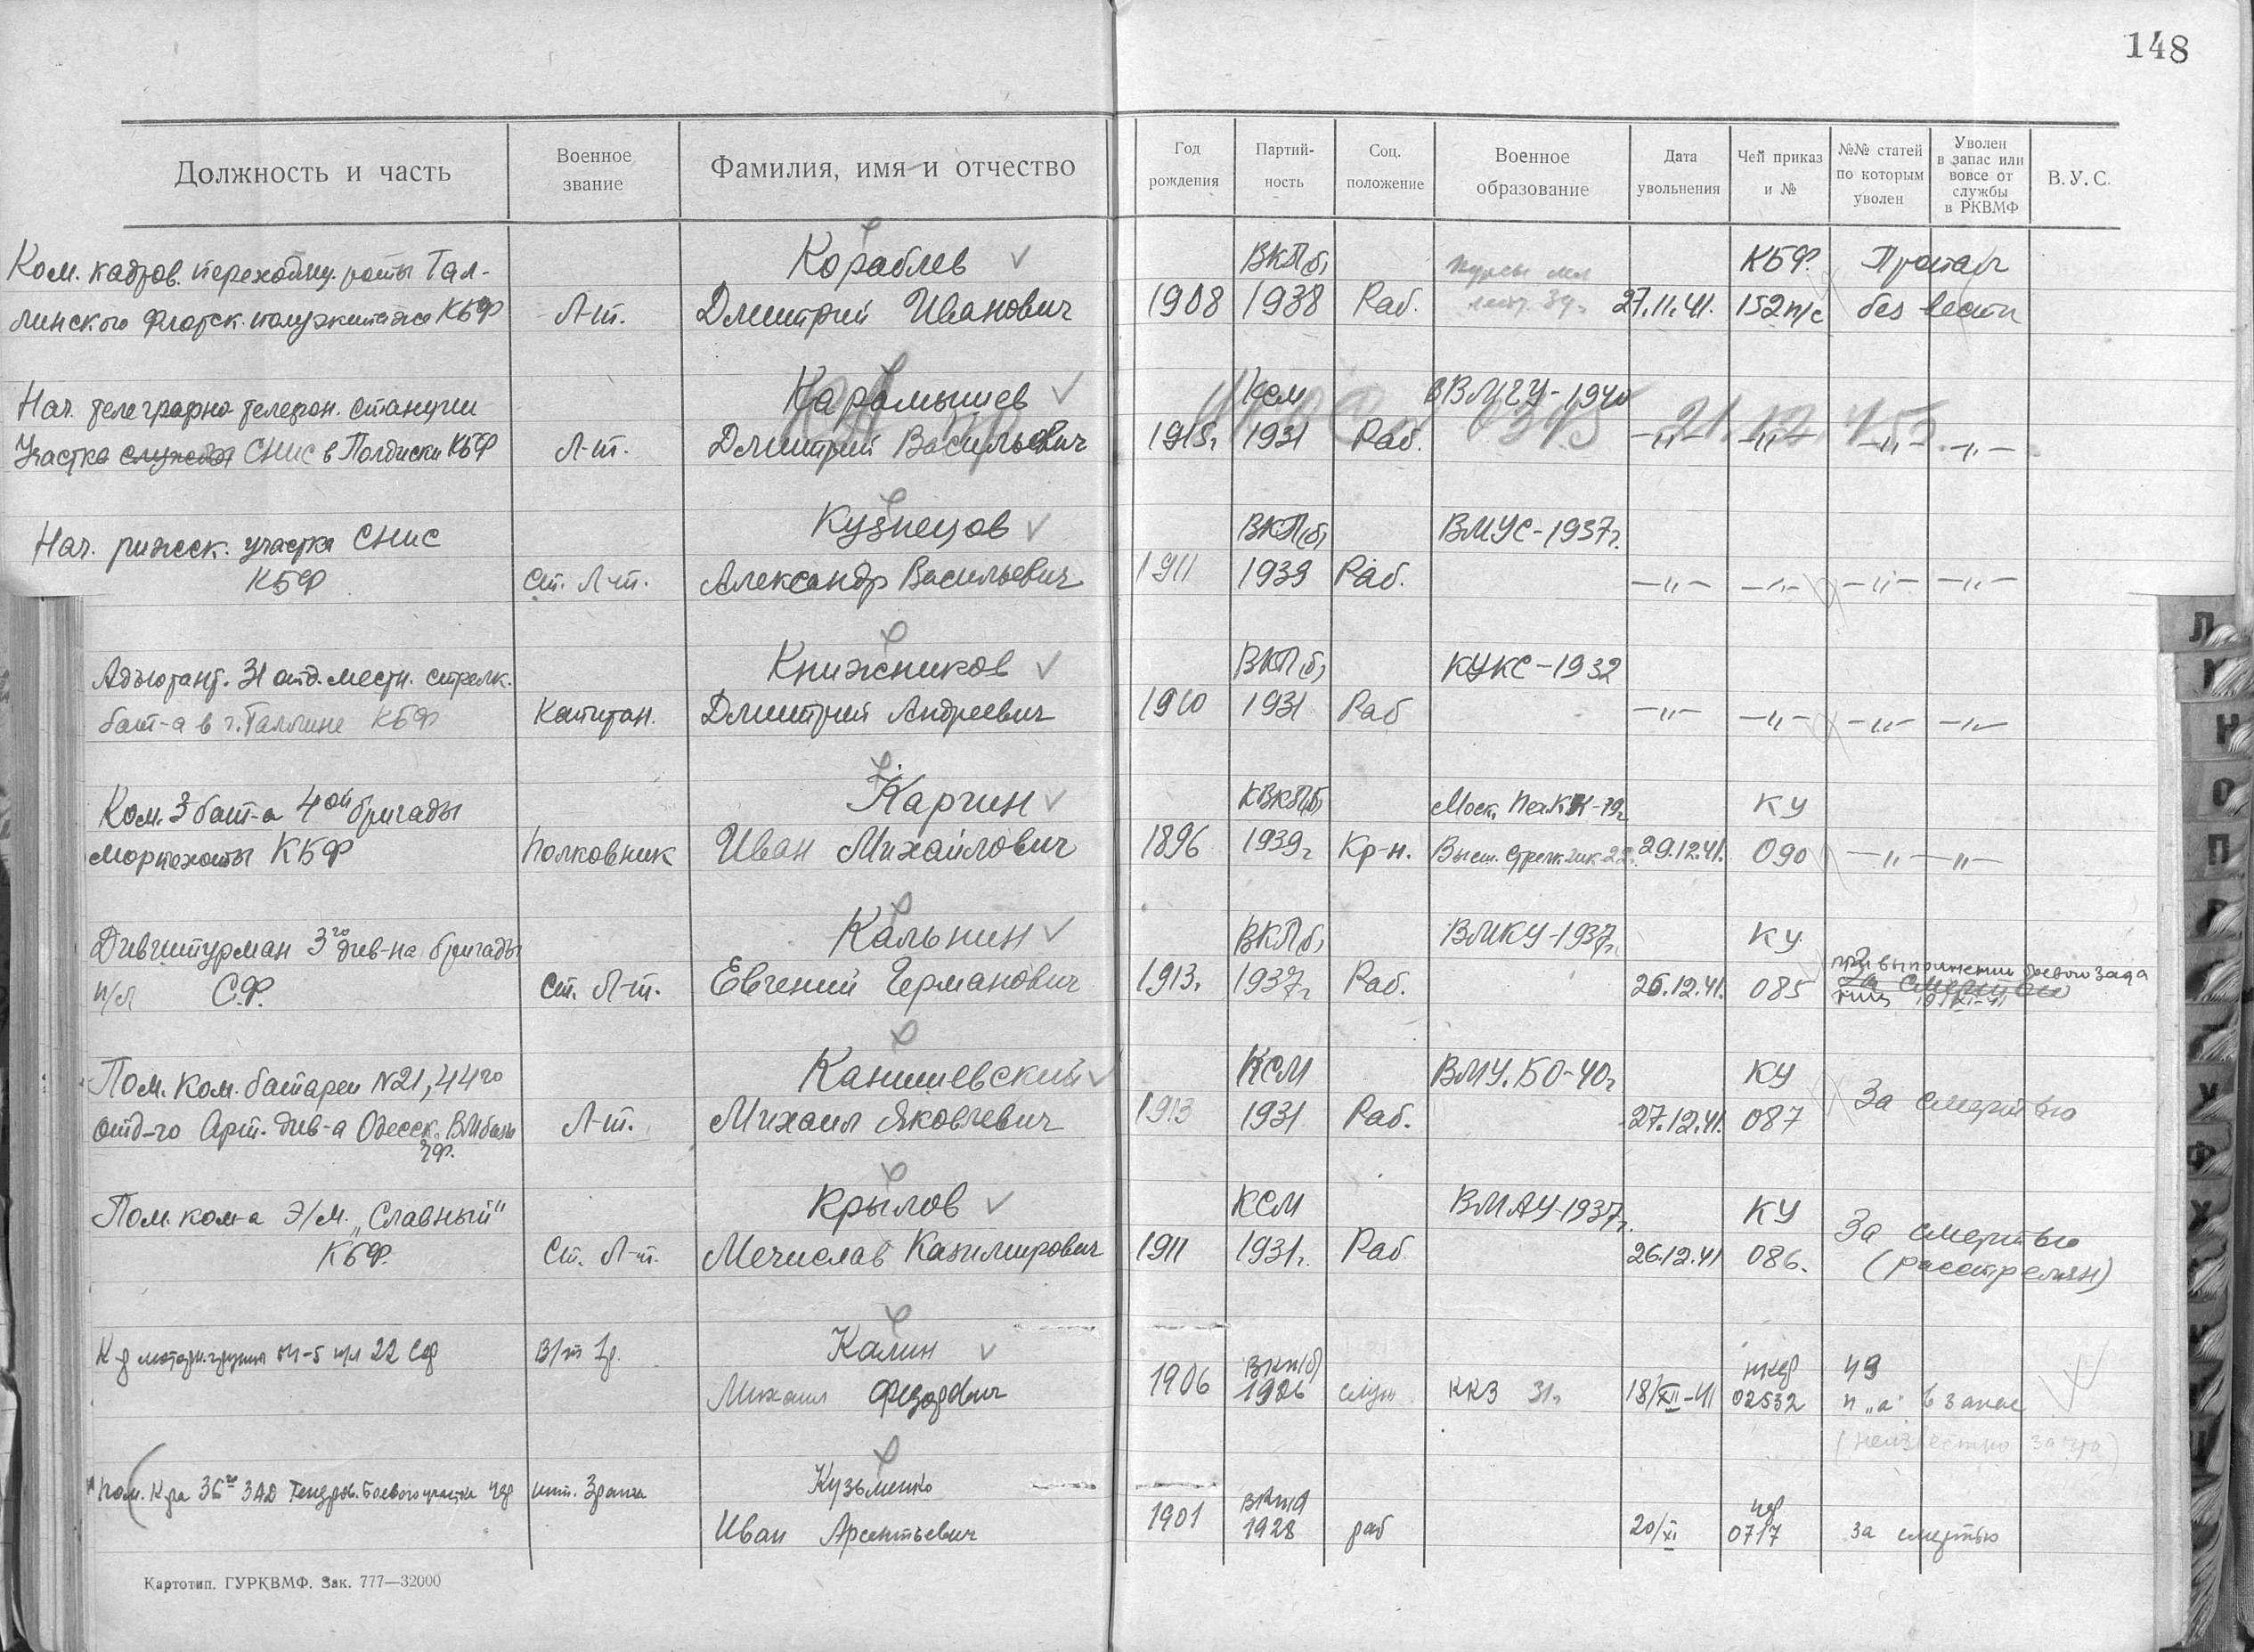 148
Должность и часть
Военное звание
Фамилия, имя и отчество
Год рождения
Партийность
Соц. положение
Военное образование
Дата увольнения
Чей приказ и №
№№ статей по которым уволен
Уволен в запас или вовсе от службы в РКВМФ
В.У.С.
Кораблев ВКПб, КБФ. Пропал
Ком. кадров. переходящ. роты Тал-
линского Флотск. полуэкипажа КБФ Л-т. Дмитрий Иванович 1908 1938 Раб. 27.11.41. 152п/с без вести
Карамышев Ксм ВВМУ-1940
Нач. телеграфно телефон. станции
Участка службы СНиС в Палдиски КБФ Л-т. Дмитрий Васильевич 1915г 1931 Раб. —„— —„— —„— —„—
Кузнецов ВКПб, ВМУС-1937г.
Нач. рижск. участка СНиС
КБФ Ст. Л-т. Александр Васильевич 1911 1939 Раб. —„— —„— —„— —„—
Книжников ВКПб, КУКС-1932
Адъютант. 31 отд. местн. стрелк.
бат-а в г. Таллине КБФ Капитан. Дмитрий Андреевич 1910 1931 Раб —„— —„— —„— —„—
Каргин КУ
Ком. 3 бат-а 4ой бригады
морпехоты КБФ Полковник Иван Михайлович 1896 1939г Кр-н. 29.12.41. 090 —„— —„—
Кальнин ВКПб, ВМКУ-1937г. КУ
Дивштурман 3го див-на бригады при выполнении боевого зада
п/л С.Ф. Ст. Л-т. Евгений Германович 1913. 1937г Раб. 26.12.41. 085 За смертью
Канишевский КСМ ВМУ.БО-40г КУ
Пом. Ком. батареи №21, 44го За смертью
отд-го Арт. див-а Одесск. ВМбазы Л-т. Михаил Яковлевич 1913 1931 Раб. 27.12.41. 087
ЧФ.
Крылов КСМ ВМАУ-1937г. КУ За смертью
Пом. ком-а Э/М. „Славный"
КБФ. Ст. Л-т. Мечислав Казимирович 1911 1931г. Раб 26.12.41 086. (расстрелян)
К-р группы п/л 22 В/т 1р. Калин ВКП(б) 49
Михаил 1906 1926 служ ККЗ 31г 18/XII-41 02532 п „а" в запас
(неизвестно за что)
Пом. К-ра 36го ЗАД Тендров. Боевого участка ЧФ инт. 3 ранга Кузьменко ЧФ
Иван Арсентьевич 1901 1928 раб 20/XI 0717 за смертью
Картотип. ГУРКВМФ. Зак. 777—32000
Л
Н
О
П
Р
У
Ф
Х